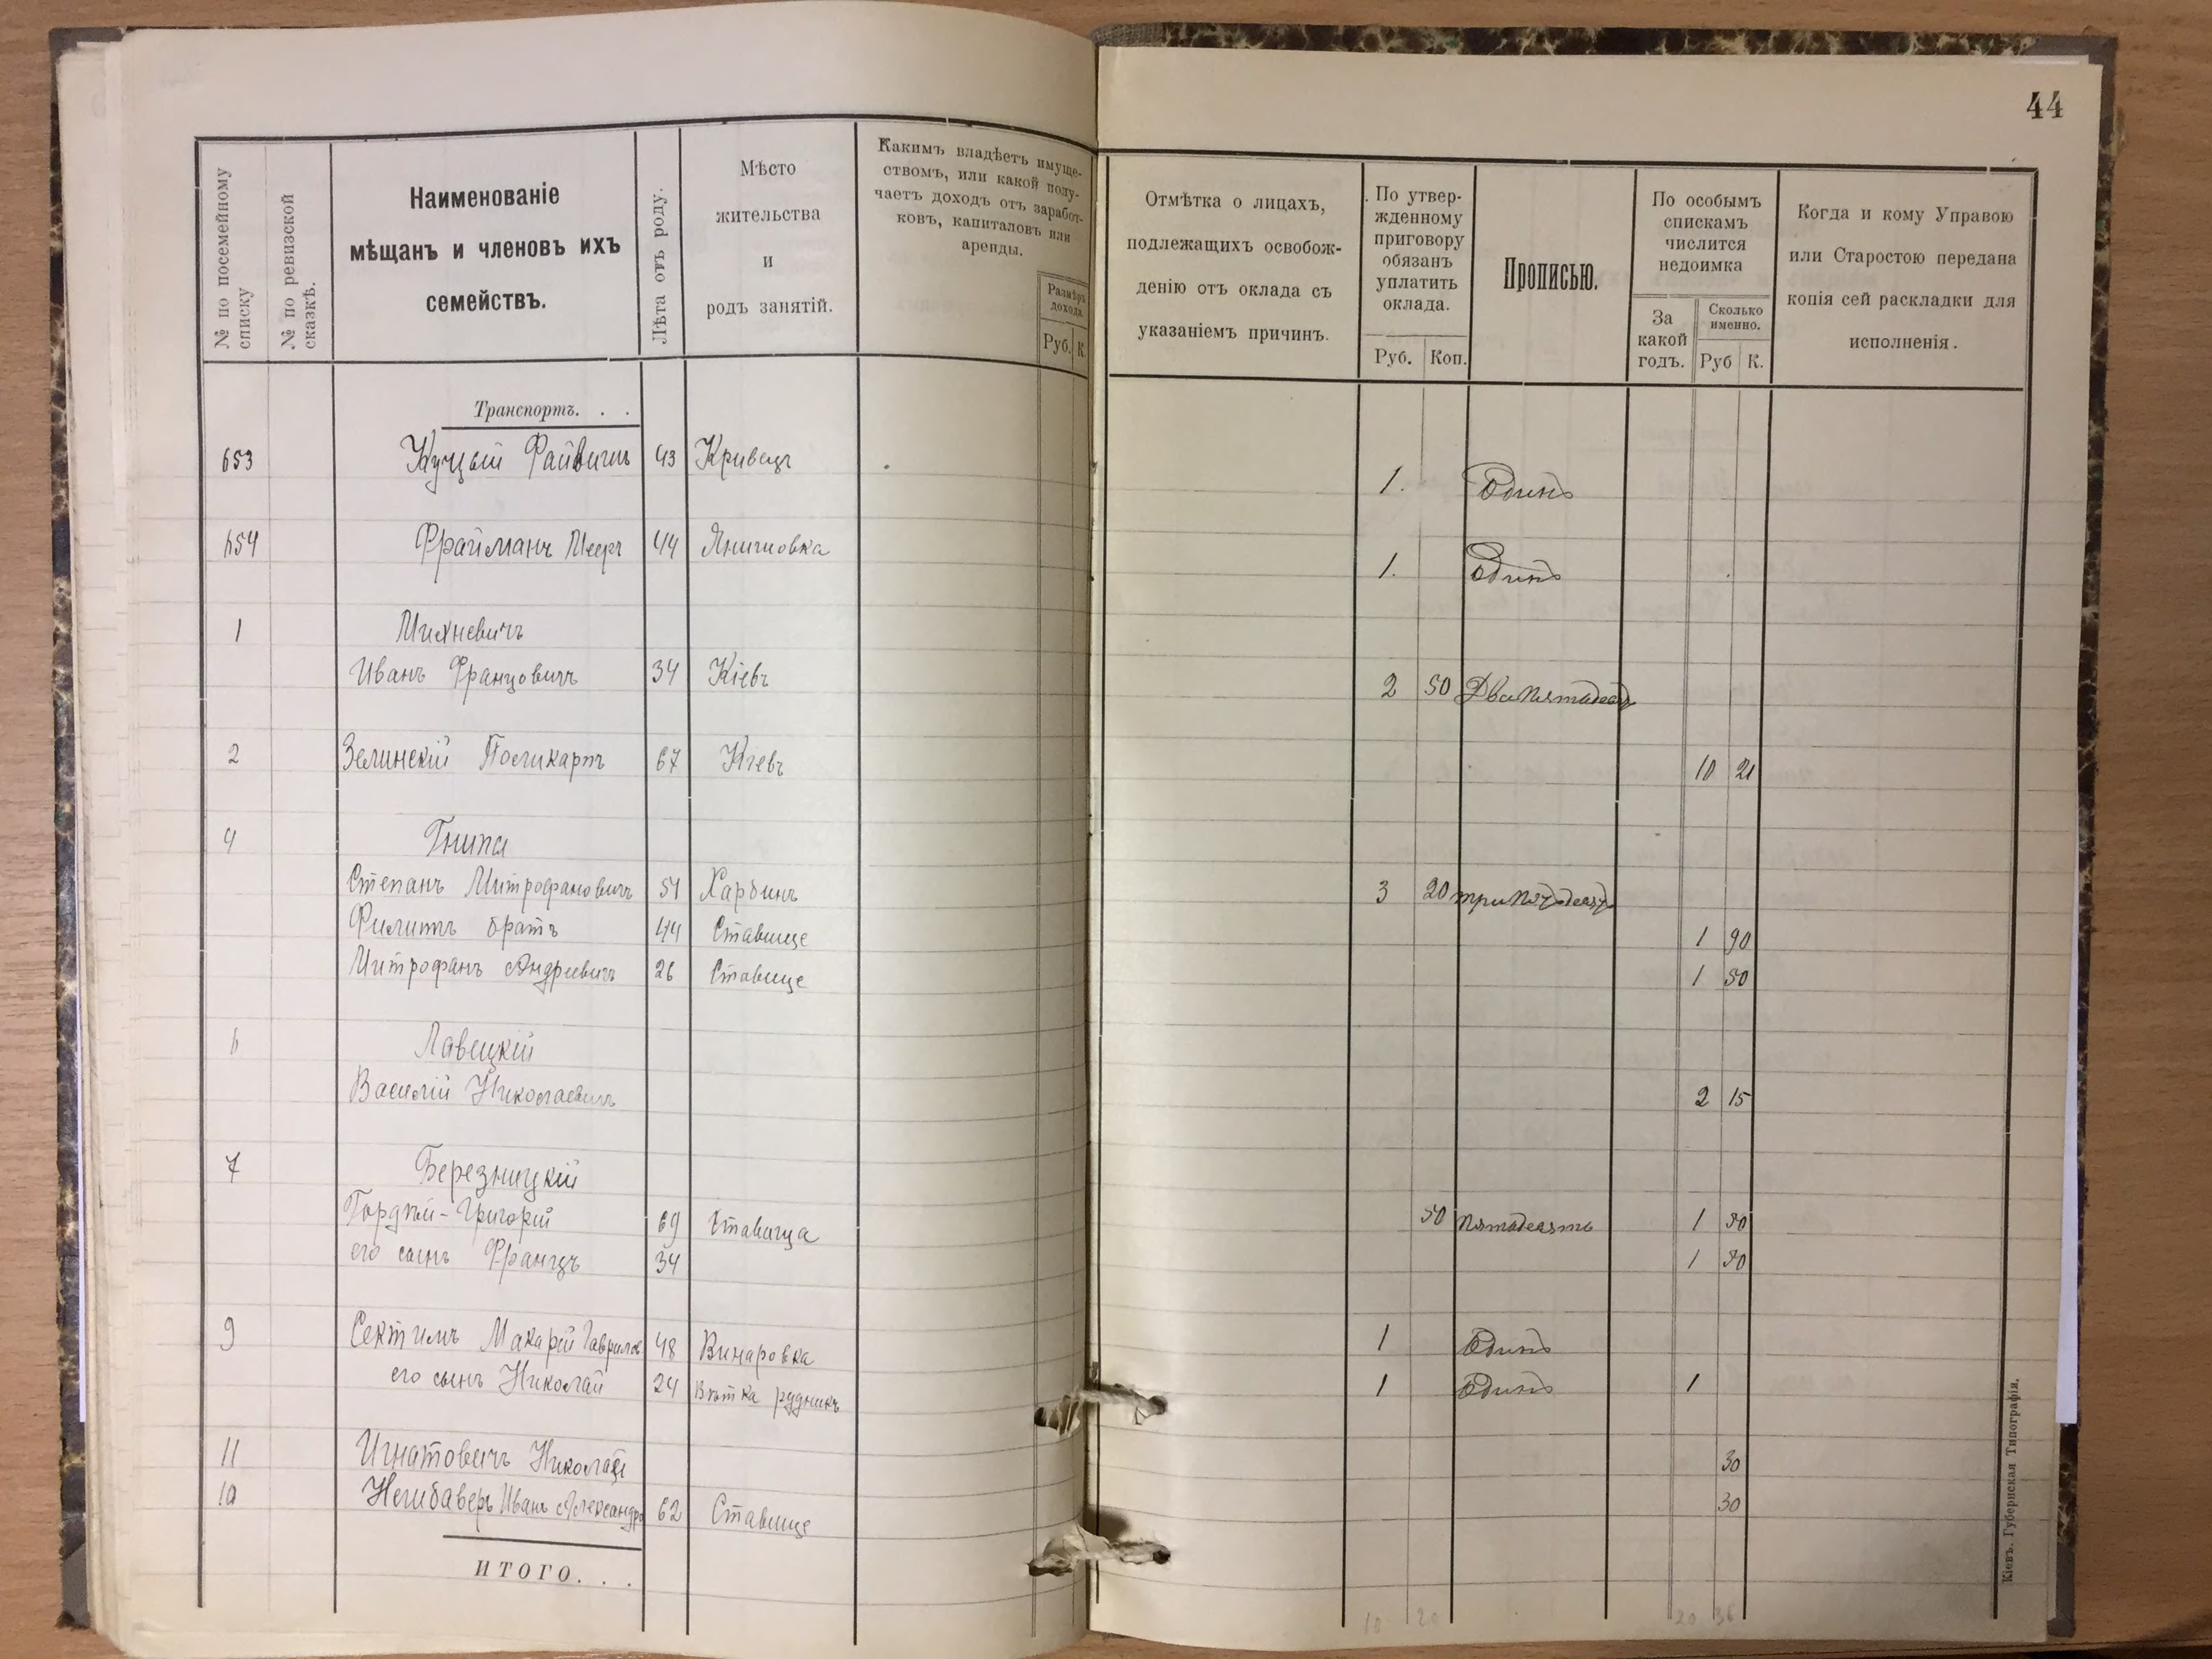 44
№ по посемейному списку
№ по ревизской сказкѣ.
Наименованіе
мѣщанъ и членовъ ихъ
семействъ.
Лѣта отъ роду.
Мѣсто
жительства
и
родъ занятій.
Какимъ владѣетъ имуще-
ствомъ, или какой полу-
чаетъ доходъ отъ заработ-
ковъ, капиталовъ или
аренды.
Размѣръ
дохода.
Руб. К.
Отмѣтка о лицахъ,
подлежащихъ освобож-
денію отъ оклада съ
указаніемъ причинъ.
По утвер-
жденному
приговору
обязанъ
уплатить
оклада.
Руб. Коп.
Прописью.
По особымъ
спискамъ
числится
недоимка
За
какой
годъ.
Сколько
именно.
Руб К.
Когда и кому Управою
или Старостою передана
копія сей раскладки для
исполненія.
Транспортъ. . .
653 Куцый 43 Кривецъ 1. Одинъ
654 Фрайманъ Мееръ 44 Янишовка 1. Одинъ
1 Михневичъ
Иванъ Францовичъ 34 Кіевъ 2 50
2 Зелинскій Поликарпъ 67 Кіевъ 10 21
4 Гнипа
Степанъ Митрофановичъ 51 Харбинъ 3 20
Филиппъ братъ 44 Ставище 1 90
Митрофанъ Андреевичъ 26 Ставище 1 50
6 Лавецкій
Василій Николаевичъ 2 15
7 Березницкій
Гордѣй-Григорій 69 Ставища 50 пятьдесятъ 1 50
его сынъ Францъ 34 1 50
9 Макарій Гаврилов 48 Винаровка 1 Одинъ
его сынъ Николай 24 Вѣтка рудникъ 1 Одинъ 1
11 Игнатовичъ Николай 30
10 Иванъ Александр 62 Ставище 30
ИТОГО. . .
20 36
Кіевъ. Губернская Типографія.